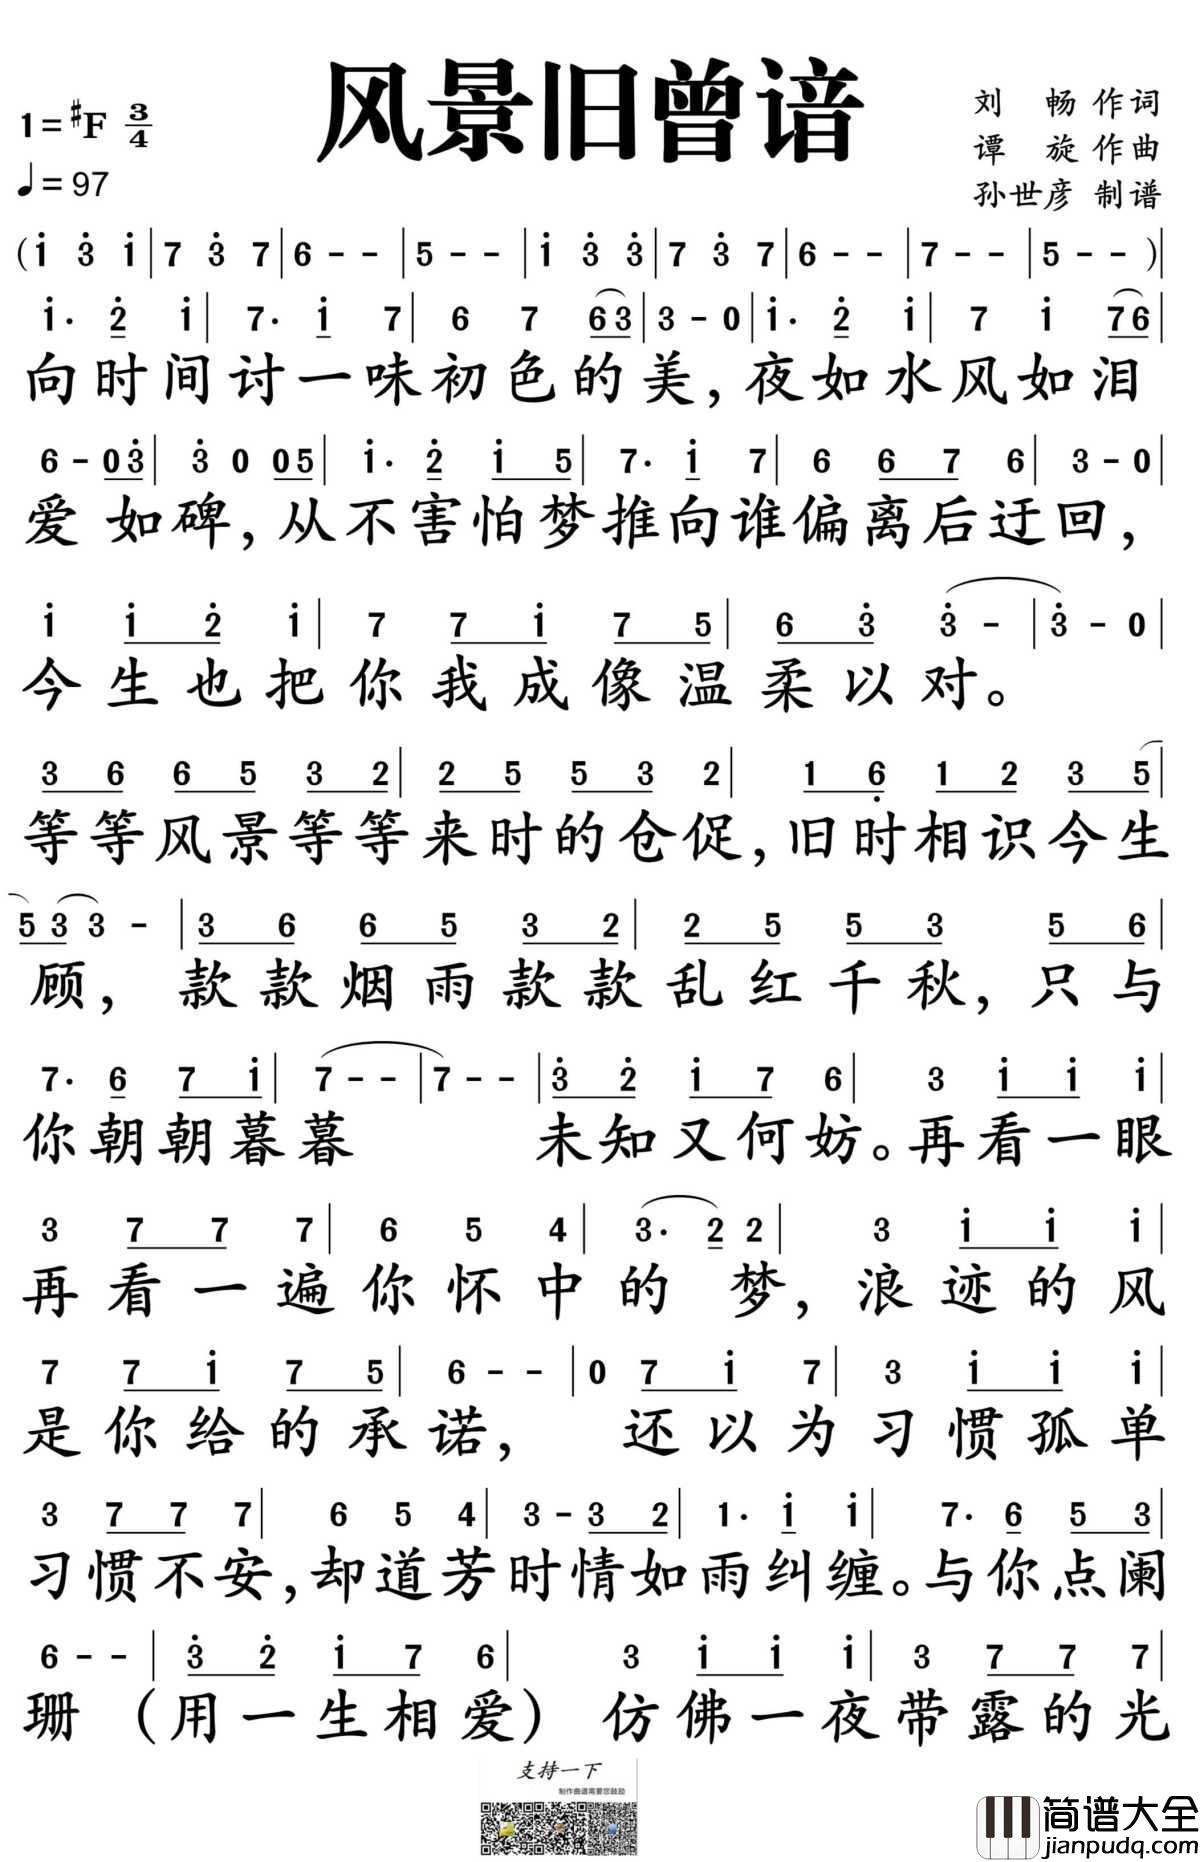 风景旧曾谙
1=♯F 3/4
♩=97
刘 畅 作词
谭 旋 作曲
孙世彦 制谱
(i 3̇ i|7 3̇ 7|6 - -|5 - -|i 3̇ 3̇|7 3̇ 7|6 - -|7 - -|5 - -)|
i· 2̇ i|7· i 7|6 7 63|3 - 0|i· 2̇ i|7 i 76|
向时间讨一味初色的美,夜如水风如泪
6 - 03̇|3̇ 0 05|i· 2̇ i5|7· i 7|6 67 6|3 - 0|
爱如碑,从不害怕梦推向谁偏离后迂回,
i i2̇ i|7 7i 75|63̇ 3̇ -|3̇ - 0|
今生也把你我成像温柔以对。
36 65 32|25 53 2|16̣ 12 35|
等等风景等等来时的仓促,旧时相识今生
53 3 -|36 65 32|25 53 56|
顾,款款烟雨款款乱红千秋,只与
7· 6 7i|7 - -|7 - -|3̇2̇ i7 6|3 ii i|
你朝朝暮暮 未知又何妨。再看一眼
3 77 7|6 5 4|3· 2 2|3 ii i|
再看一遍你怀中的梦,浪迹的风
7 7i 75|6 - -|0 7i 7|3 ii i|
是你给的承诺,还以为习惯孤单
3 77 7|6 5 4|3 - 32|1· i i|7· 6 53|
习惯不安,却道芳时情如雨纠缠。与你点阑
6 - -|3̇2̇ i7 6|3 ii i|3 77 7|
珊(用一生相爱)仿佛一夜带露的光
支持一下
制作曲谱需要您鼓励
简谱大全
jianpudq.com